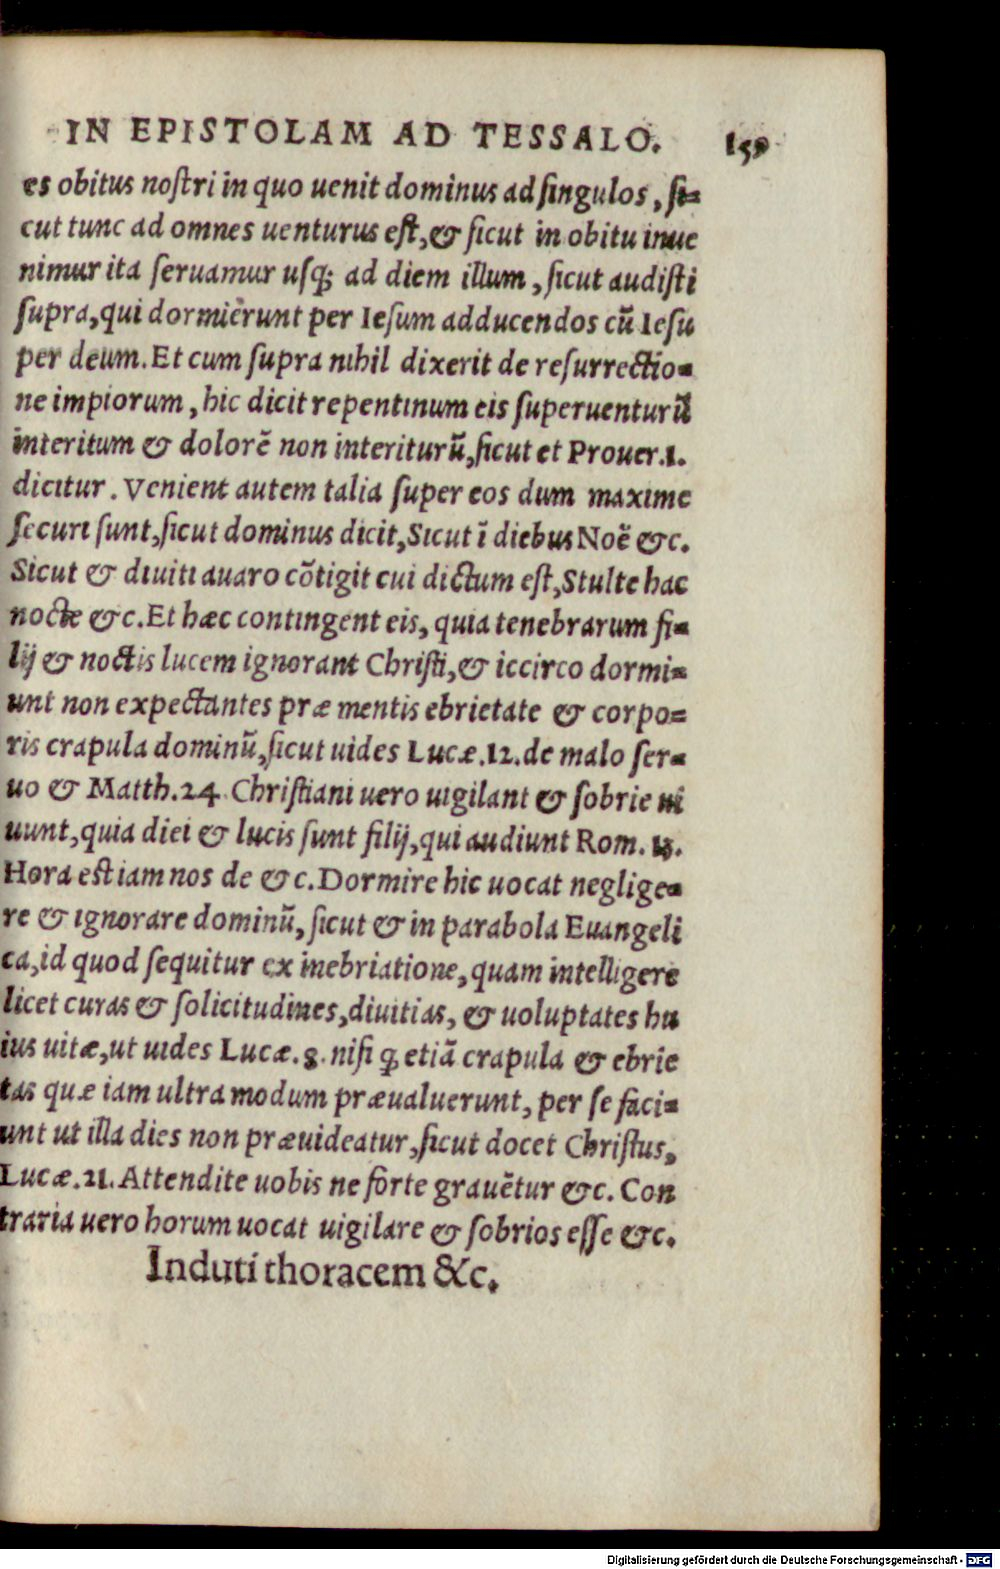 IN EPISTOLAM AD TESSALO. 159
es obitus noſtri in quo uenit dominus ad ſingulos, ſi-
cut tunc ad omnes uenturus eſt,& ſicut in obitu inue
nimur ita ſeruamur uſq; ad diem illum, ſicut audiſti
ſupra,qui dormierunt per Ieſum adducendos cū Ieſu
per deum. Et cum ſupra nihil dixerit de reſurrectio-
ne impiorum, hic dicit repentinum eis ſuperuenturū
interitum & dolorē non interiturū,ſicut et Prouer.1.
dicitur. Venient autem talia ſuper eos dum maxime
ſecuri ſunt,ſicut dominus dicit,Sicut ī diebus Noē &c.
Sicut & diuiti auaro cōtigit cui dictum eſt,Stulte hac
nocte &c. Et hæc contingent eis, quia tenebrarum fi-
lij & noctis lucem ignorant Chriſti,& iccirco dormi-
unt non expectantes præ mentis ebrietate & corpo-
ris crapula dominū,ſicut uides Lucæ.12. de malo ſer-
uo & Matth.24. Chriſtiani uero uigilant & ſobrie ui
uunt,quia diei & lucis ſunt filij,qui audiunt Rom. 13.
Hora eſt iam nos de &c. Dormire hic uocat neglige-
re & ignorare dominū, ſicut & in parabola Euangeli
ca,id quod ſequitur ex inebriatione,quam intelligere
licet curas & ſolicitudines,diuitias, & uoluptates hu
ius uitæ,ut uides Lucæ.8. niſi ꝙ etiā crapula & ebrie
tas quæ iam ultra modum præualuerunt, per ſe faci-
unt ut illa dies non præuideatur,ſicut docet Chriſtus,
Lucæ.21. Attendite uobis ne forte grauētur &c. Con
traria uero horum uocat uigilare & ſobrios eſſe &c.
Induti thoracem &c.
Digitalisierung gefördert durch die Deutsche Forschungsgemeinschaft - DFG